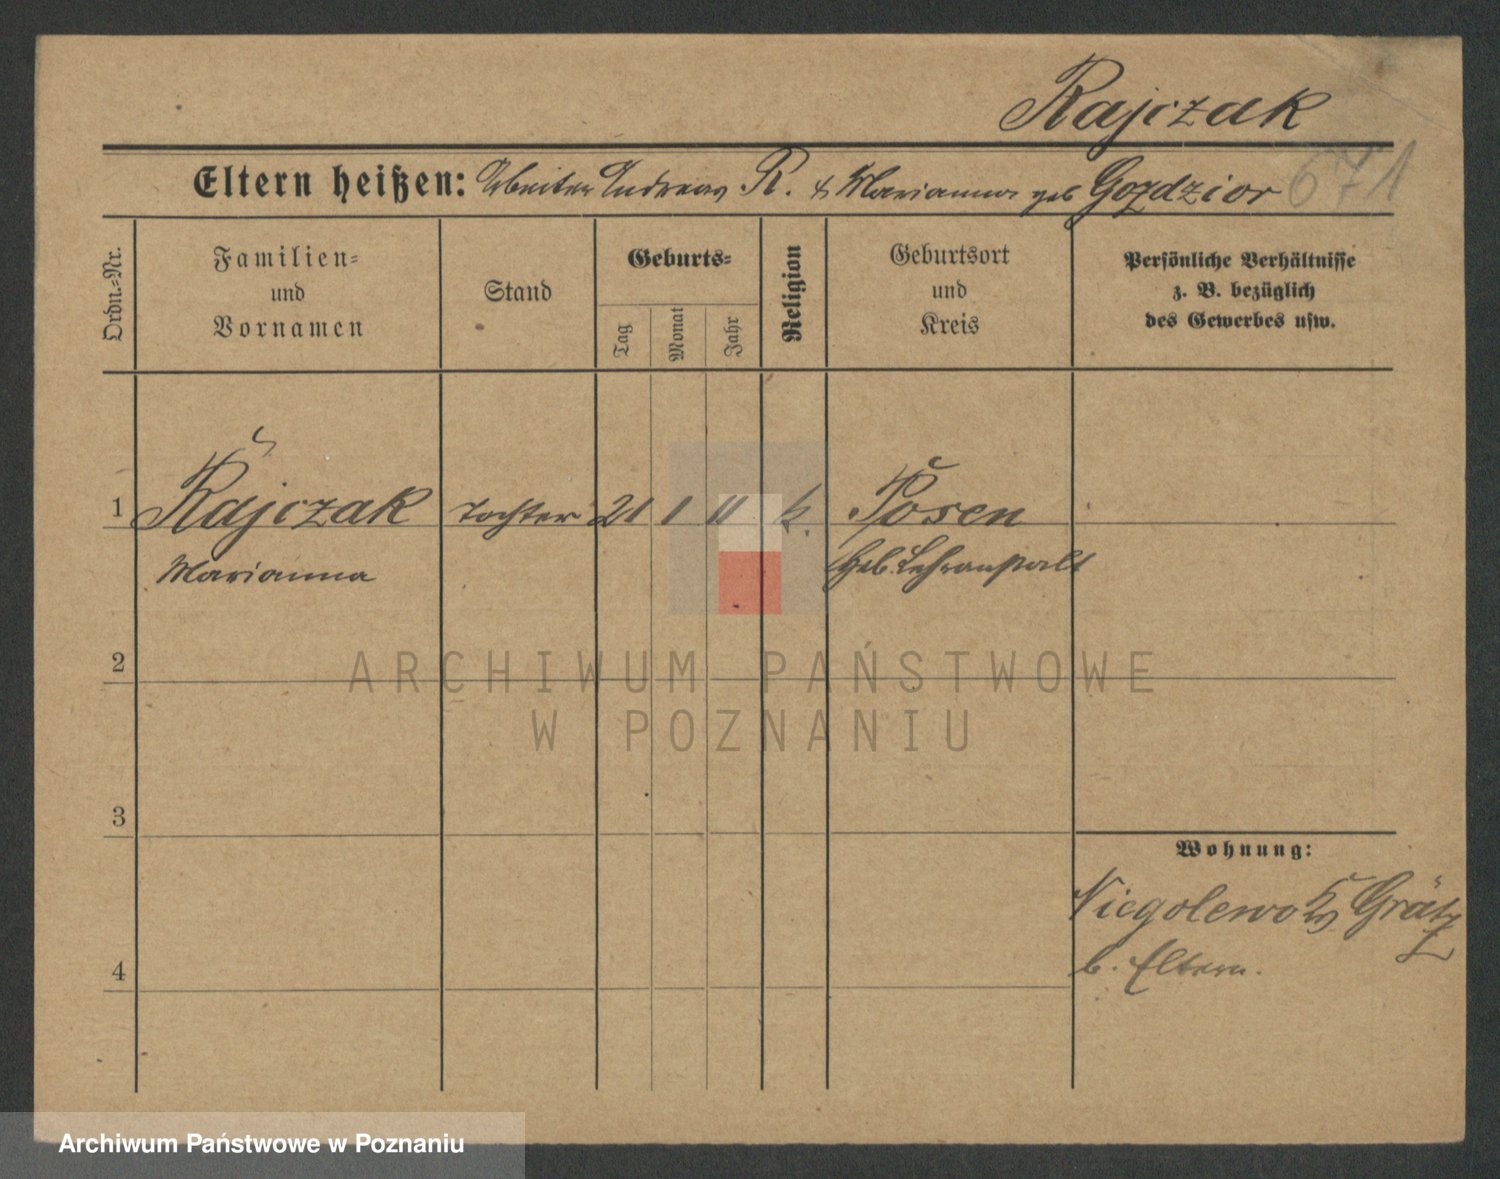 Rajczak
Eltern heißen: Arbeiter Andreas R. & Marianna geb Gozdzior 671
Ordn.-Nr.
Familien-
und
Vornamen
Stand
Geburts-
Tag
Monat
Jahr
Religion
Geburtsort
und
Kreis
Persönliche Verhältnisse
z. B. bezüglich
des Gewerbes usw.
1 Rajczak Tochter 21 1 11 k. Posen
Marianna Heb. Lehranstalt
2
ARCHIWUM PAŃSTWOWE
W POZNANIU
3
Wohnung:
Niegolewo Ks Grätz
b. Eltern.
4
Archiwum Państwowe w Poznaniu